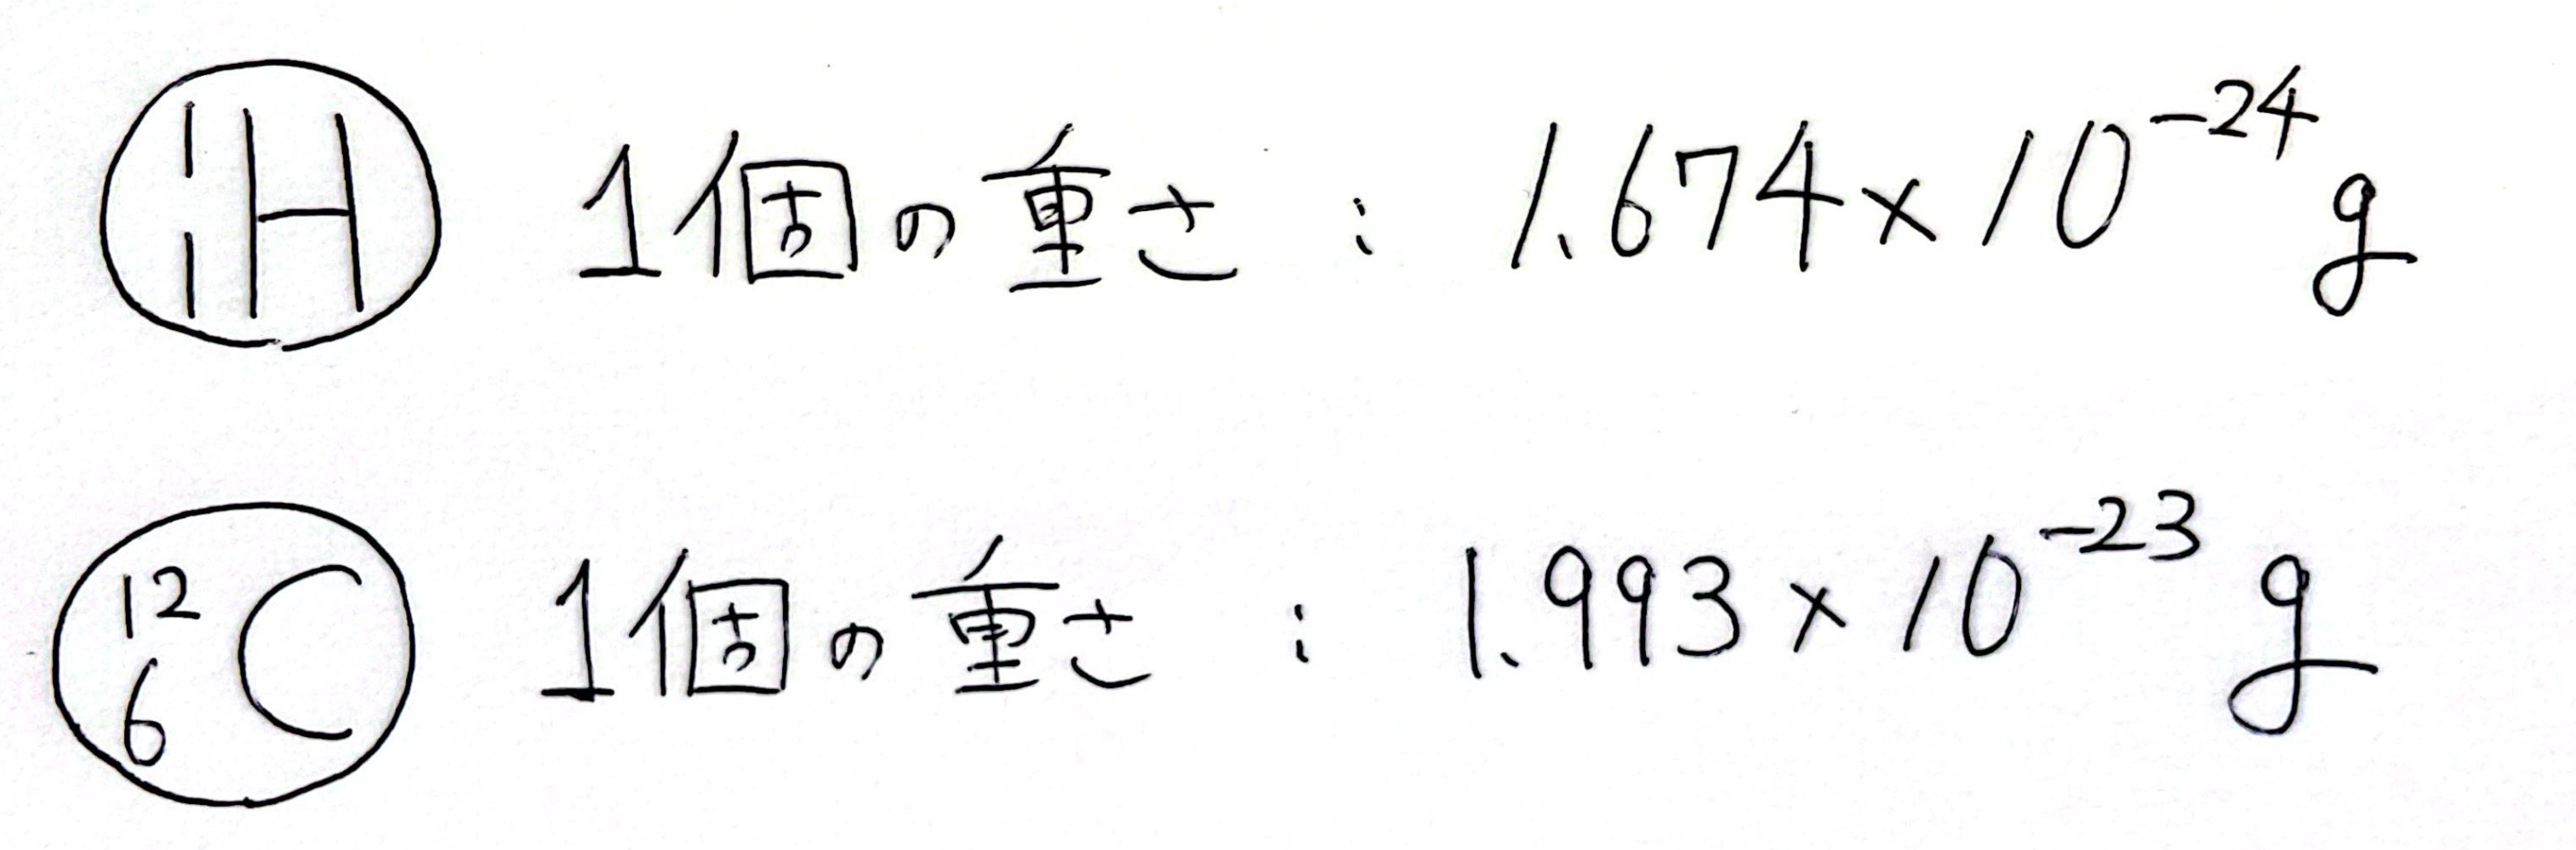 ¹₁H 1個の重さ : 1.674×10⁻²⁴g
¹²₆C 1個の重さ : 1.993×10⁻²³g